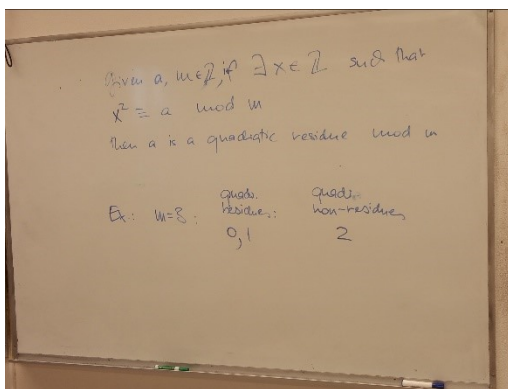 Given a, m∈ℤ, if ∃ x∈ℤ such that
x² ≡ a mod m
then a is a quadratic residue mod m
Ex: m=3: quadr. residues: quadr. non-residues
0,1 2